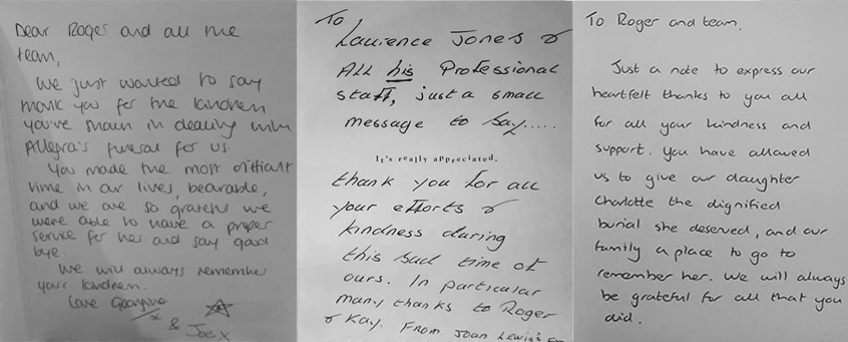 Dear Roger and all the
team,
We just wanted to say
thank you for the kindness
you've shown in dealing with
Allegra's funeral for us.
You made the most difficult
time in our lives, bearable,
and we are so grateful we
were able to have a proper
service for her and say good
bye.
We will always remember
your kindness.
Love Georgina
x & Joe x
To
Laurence Jones &
All his Professional
staff, just a small
message to say.....
It's really appreciated.
thank you for all
your efforts &
kindness during
this sad time of
ours. In particular
many thanks to Roger
& Kay. From Joan Lewis's
To Roger and team,
Just a note to express our
heartfelt thanks to you all
for all your kindness and
support. You have allowed
us to give our daughter
Charlotte the dignified
burial she deserved, and our
family a place to go to
remember her. We will always
be grateful for all that you
did.